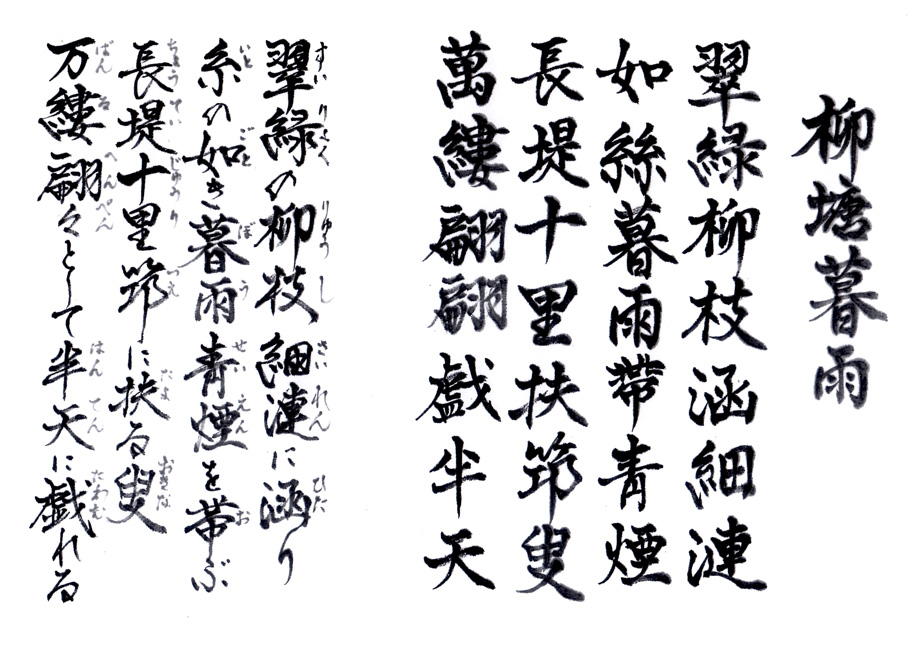 柳塘暮雨
翠緑柳枝涵細漣
如絲暮雨帶青煙
長堤十里扶筇叟
萬縷翩翩戲半天
翠緑の柳枝細漣に涵り
すいりょく りゅうし さいれん ひた
糸の如き暮雨青煙を帯ぶ
いと ごと ぼう せいえん お
長堤十里筇に扶る叟
ちょうてい じゅうり つえ たよ おきな
万縷翩々として半天に戯れる
ばんる へんぺん はんてん たわむ